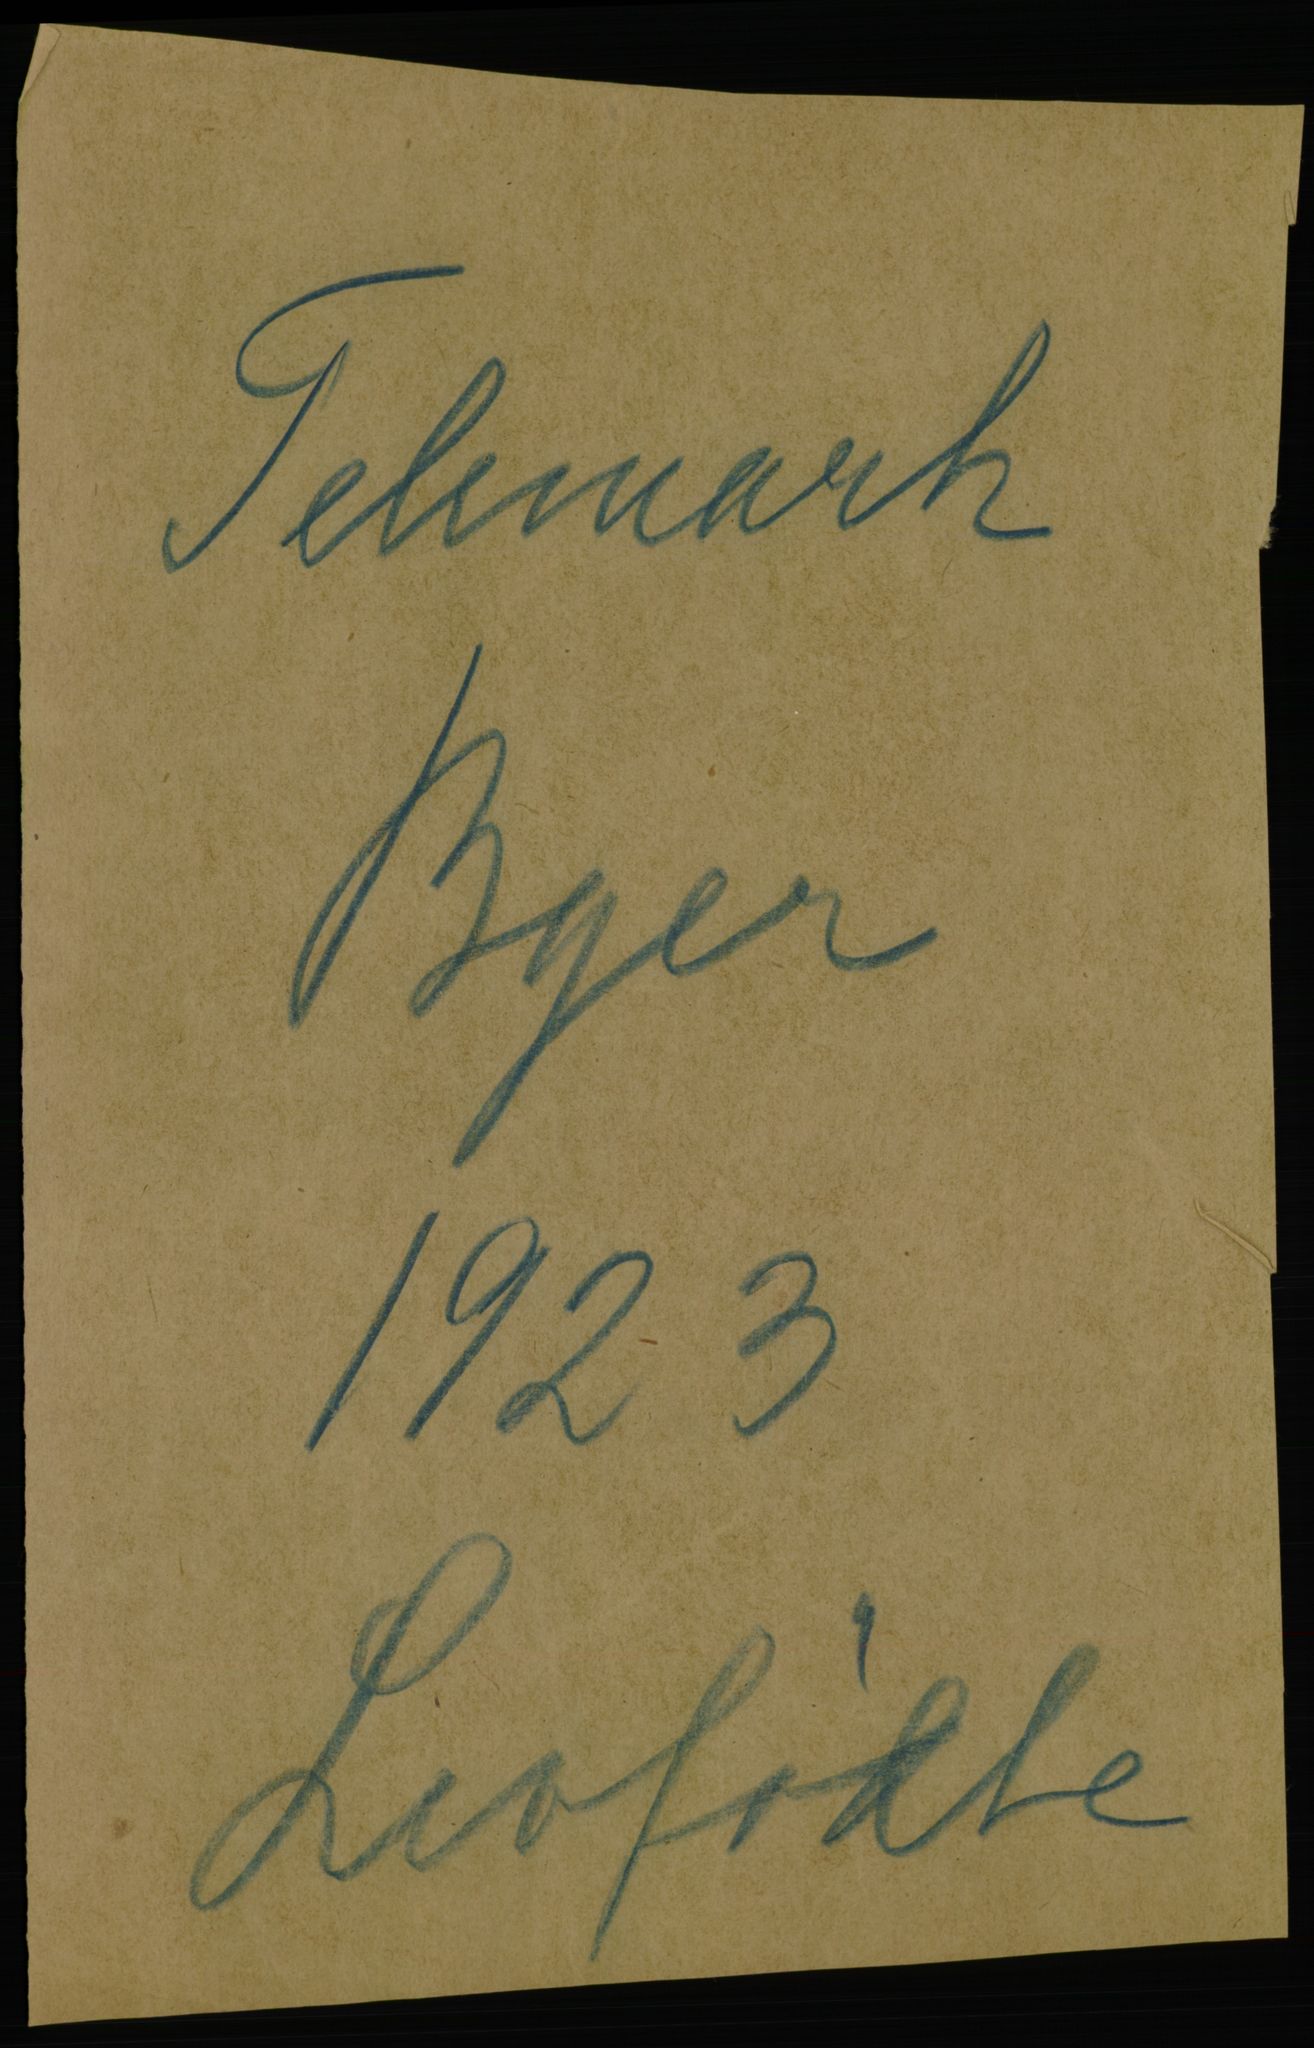 Telemark
Byer
1923
Levfödte